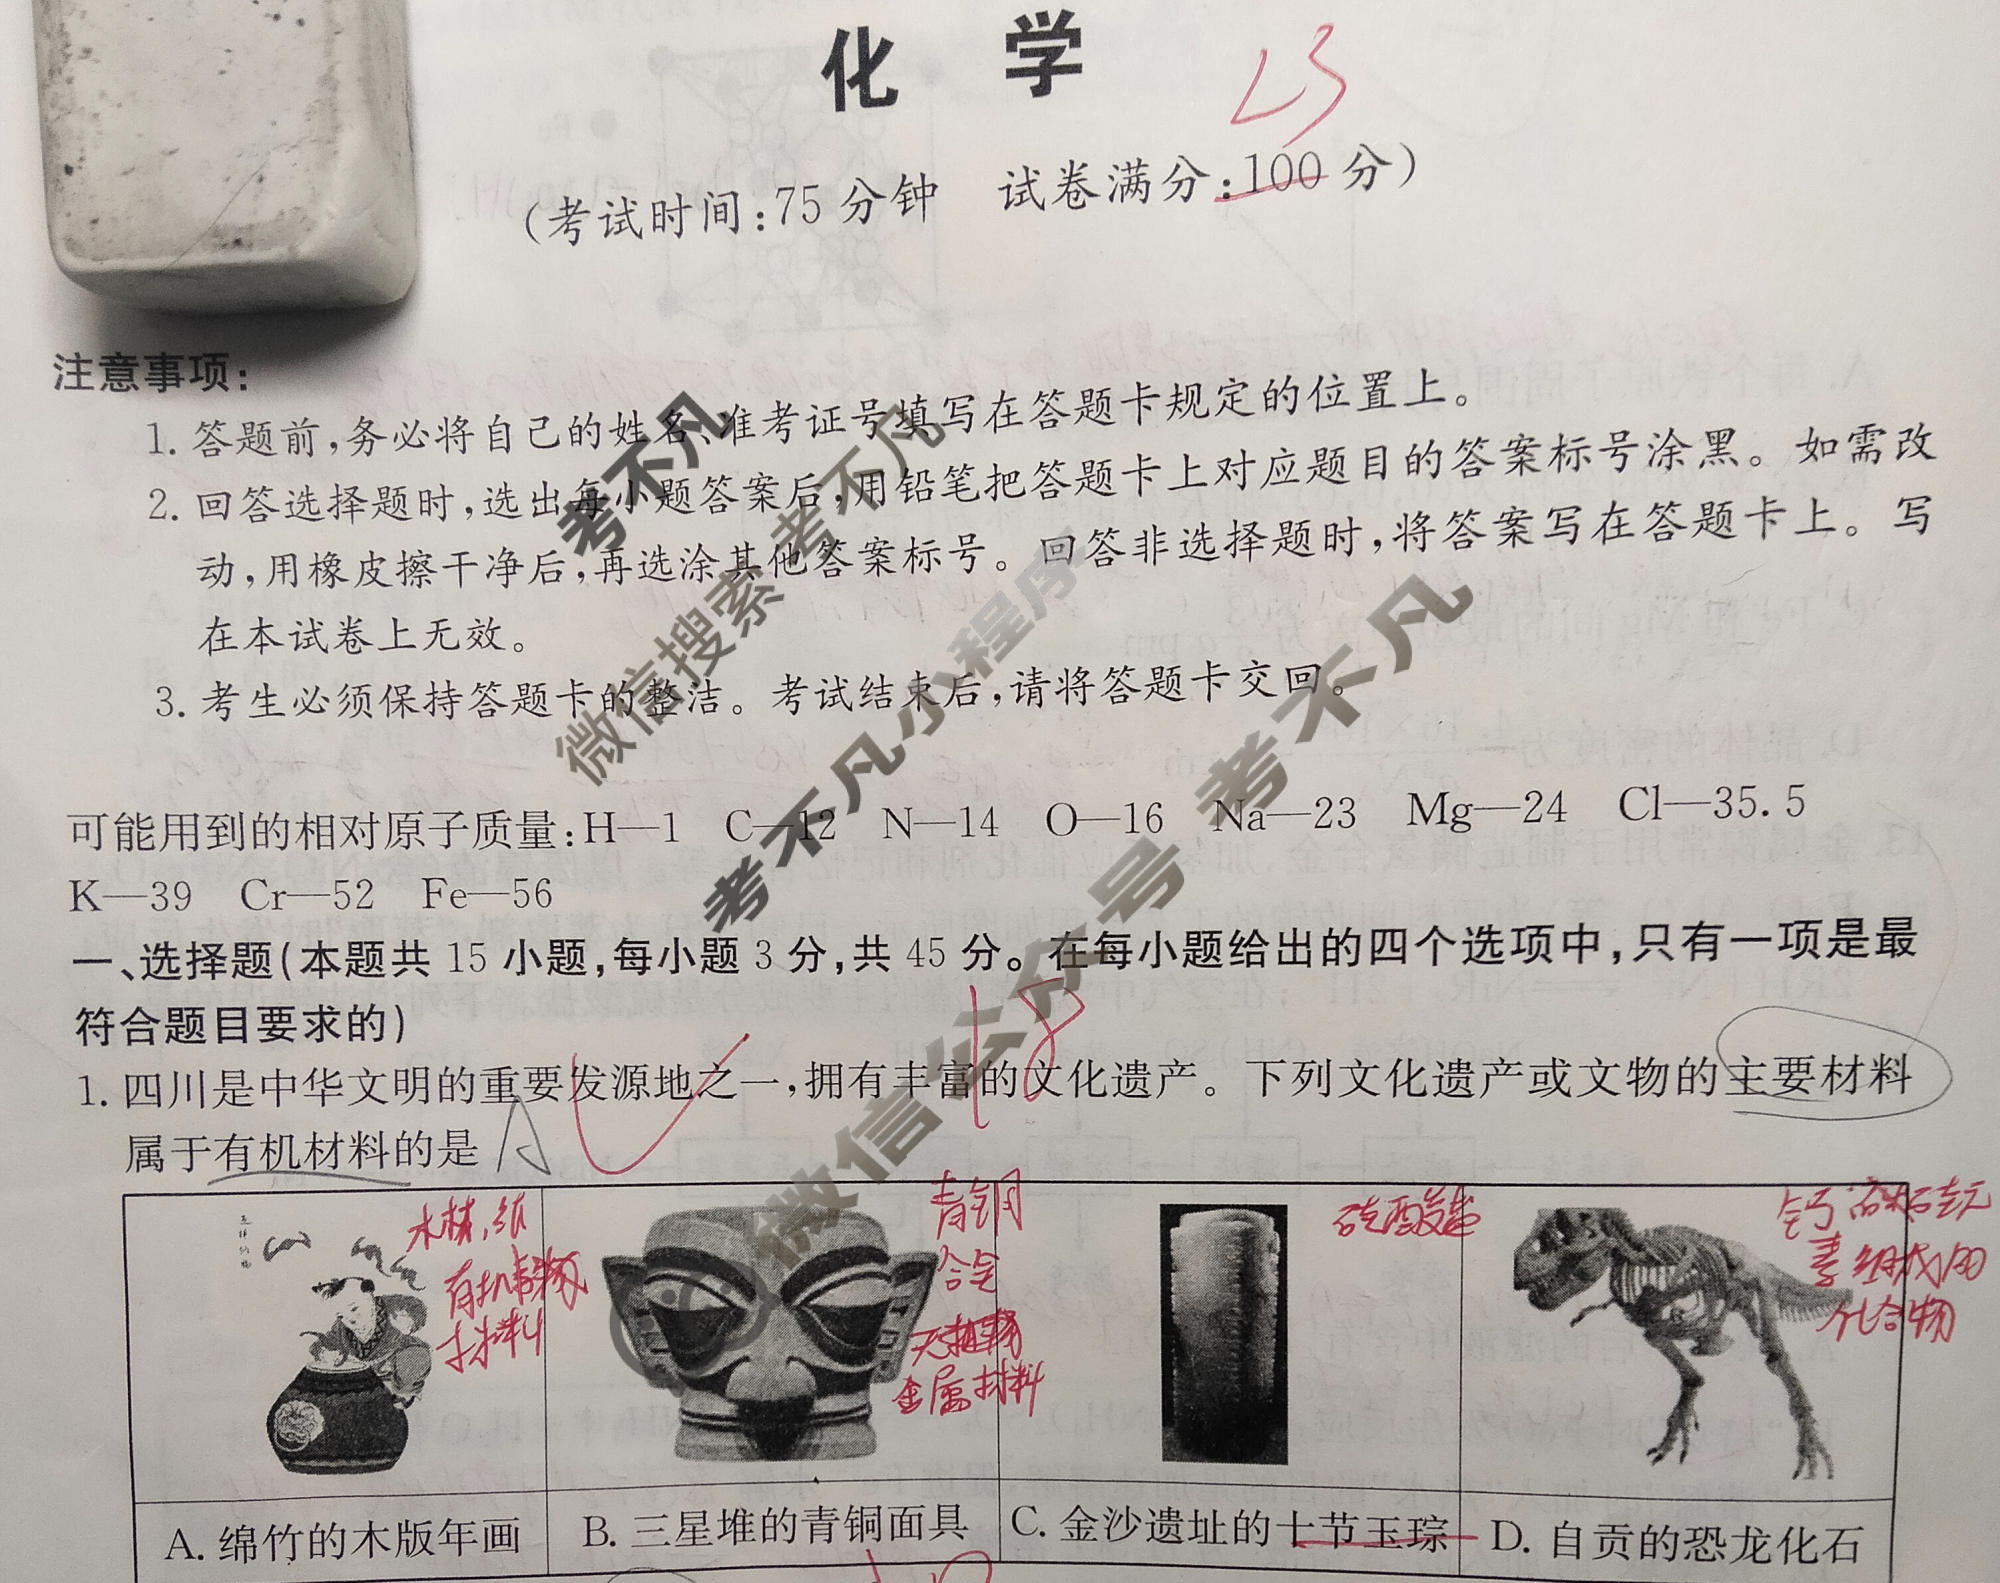 化 学
(考试时间:75分钟 试卷满分:100分)
注意事项:
1. 答题前,务必将自己的姓名、准考证号填写在答题卡规定的位置上。
2. 回答选择题时,选出每小题答案后,用铅笔把答题卡上对应题目的答案标号涂黑。如需改
动,用橡皮擦干净后,再选涂其他答案标号。回答非选择题时,将答案写在答题卡上。写
在本试卷上无效。
3. 考生必须保持答题卡的整洁。考试结束后,请将答题卡交回。
考不凡
微信搜索 考不凡
考不凡小程序
微信公众号 考不凡
可能用到的相对原子质量:H—1 C—12 N—14 O—16 Na—23 Mg—24 Cl—35.5
K—39 Cr—52 Fe—56
一、选择题(本题共15小题,每小题3分,共45分。在每小题给出的四个选项中,只有一项是最
符合题目要求的)
18
1. 四川是中华文明的重要发源地之一,拥有丰富的文化遗产。下列文化遗产或文物的主要材料
属于有机材料的是 A
木材、纸
青铜
合金
金属材料
硅酸盐
化合物
A. 绵竹的木版年画
B. 三星堆的青铜面具
C. 金沙遗址的十节玉琮
D. 自贡的恐龙化石